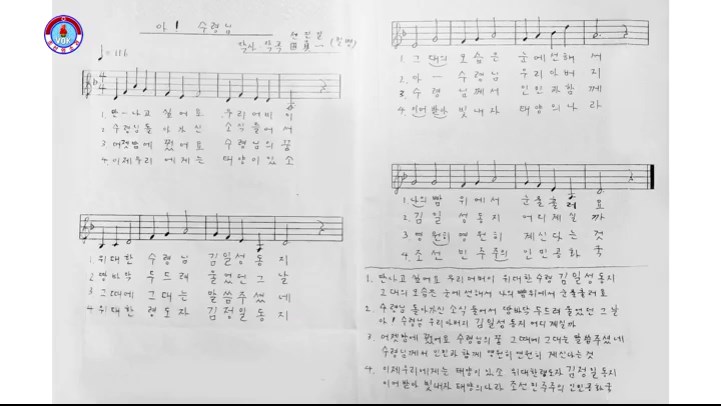 VOK
아! 수령님
작사 작곡
♩= 116
1. 만나고 싶어요 우리어버이
2. 수령님돌아가신 소식들어서
3. 어젯밤에 꿨어요 수령님의꿈
4. 이제우리에게는 태양이있소
1. 위대한 수령님 김일성동지
2. 땅바닥 두드려 울었던그날
3. 그때에 그대는 말씀주셨네
4. 위대한 령도자 김정일동지
1. 그대의 모습은 눈에선해서
2. 아ㅡ 수령님 우리아버지
3. 수령님께서 인민과함께
4. 이어받아 빛내자 태양의나라
1. 나의뺨 위에서 눈물흘러요
2. 김일성동지 어디계실까
3. 영원히 영원히 계신다는것
4. 조선민주주의 인민공화국
1. 만나고 싶어요 우리어버이 위대한수령 김일성동지
그대의 모습은 눈에선해서 나의뺨위에서 눈물흘러요
2. 수령님 돌아가신 소식 들어서 땅바닥 두드려 울었던 그날
아! 수령님 우리아버지 김일성동지 어디계실까
3. 어젯밤에 꿨어요 수령님의꿈 그때에 그대는 말씀주셨네
수령님께서 인민과 함께 영원히 영원히 계신다는것
4. 이제우리에게는 태양이 있소 위대한령도자 김정일동지
이어받아 빛내자 태양의나라 조선민주주의 인민공화국